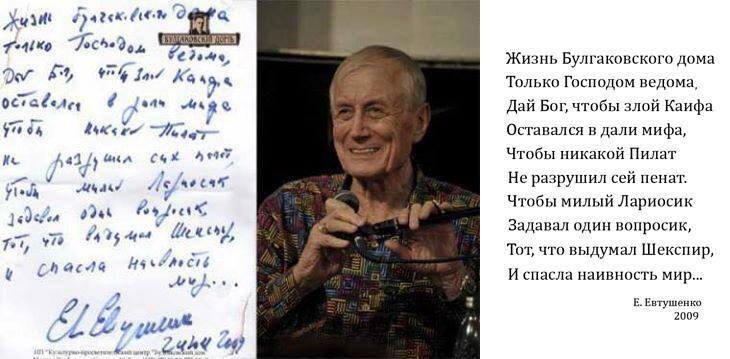 Жизнь Булгаковского дома
только Господом ведома,
Дай Б-г, чтоб злой Каифа
оставался в дали мифа
чтобы никакой Пилат
не разрушил сих пенат,
чтобы милый Лариосик
задавал один вопросик,
тот, что выдумал Шекспир,
и спасла наивность
мир...
Е. Евтушенко
2009
БУЛГАКОВСКИЙ ДОМЪ
НП "Культурно-просветительский центр "Булгаковский дом"
Жизнь Булгаковского дома
Только Господом ведома,
Дай Бог, чтобы злой Каифа
Оставался в дали мифа,
Чтобы никакой Пилат
Не разрушил сей пенат.
Чтобы милый Лариосик
Задавал один вопросик,
Тот, что выдумал Шекспир,
И спасла наивность мир...
Е. Евтушенко
2009